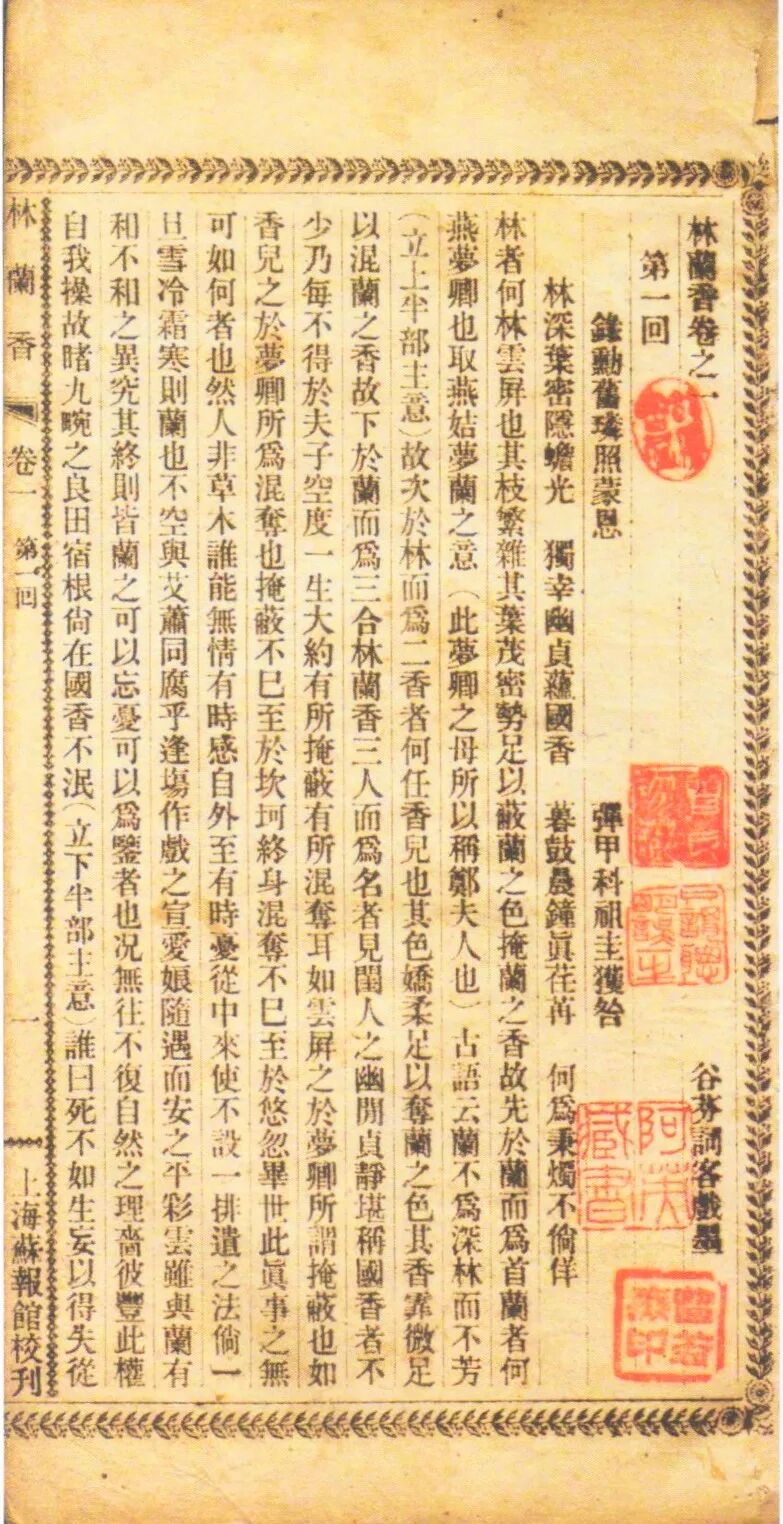 林蘭香卷之一
谷芬詞客戲墨
第一回
鋒動舊璘照蒙恩 彈甲科祖圭獲咎
林深葉密隱蟾光 獨幸幽貞蘊國香 暮鼓晨鐘眞荏苒 何爲秉燭不倘佯
林者何林雲屏也其枝繁雜其葉茂密勢足以蔽蘭之色掩蘭之香故先於蘭而爲首蘭者何
燕夢卿也取燕姞夢蘭之意（此夢卿之母所以稱鄭夫人也）古語云蘭不爲深林而不芳
（立上半部主意）故次於林而爲二香者何任香兒也其色嬌柔足以奪蘭之色其香霏微足
以混蘭之香故下於蘭而爲三合林蘭香三人而爲名者見閨人之幽閒貞靜堪稱國香者不
少乃每不得於夫子空度一生大約有所掩蔽有所混奪耳如雲屏之於夢卿所謂掩蔽也如
香兒之於夢卿所爲混奪也掩蔽不巳至於坎坷終身混奪不巳至於悠忽畢世此眞事之無
可如何者也然人非草木誰能無情有時感自外至有時憂從中來使不設一排遣之法倘一
旦雪冷霜寒則蘭也不空與艾蕭同腐乎逢塲作戲之宣愛娘隨遇而安之平彩雲雖與蘭有
和不和之異究其終則皆蘭之可以忘憂可以爲鑒者也况無往不復自然之理嗇彼豐此權
自我操故睹九畹之良田宿根尙在國香不泯（立下半部主意）誰曰死不如生妄以得失從
林蘭香 卷一 第一回 一 上海蘇報館校刊
阿英
藏書